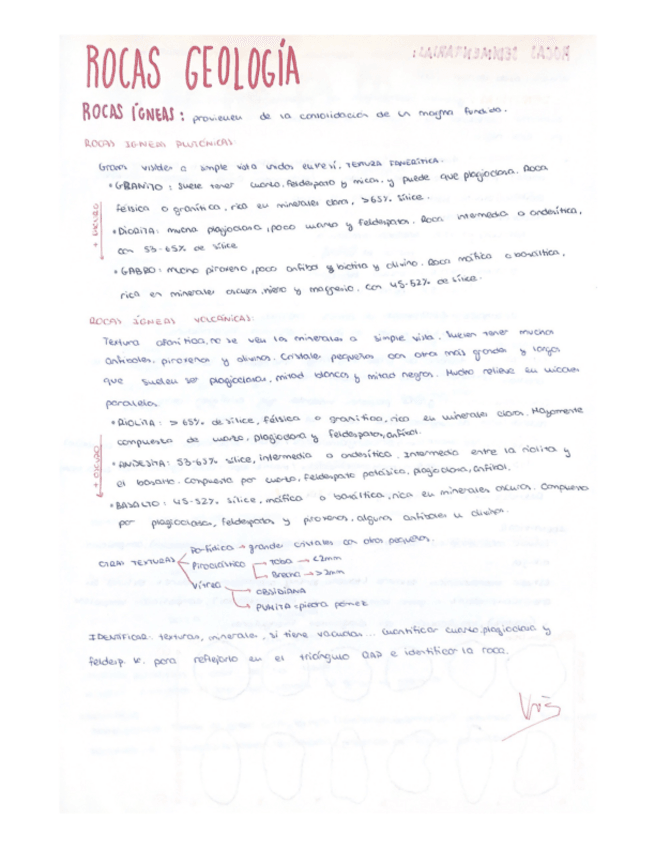 ROCAS GEOLOGÍA
ROCAS SEDIMENTARIAS:
ROCAS ÍGNEAS: provienen de la consolidación de un magma fundido.
ROCAS IGNEAS PLUTÓNICAS:
Granos visibles a simple vista unidos entre sí, TEXTURA FANERÍTICA.
• GRANITO: suele tener cuarzo, feldespato y micas, y puede que plagioclasa. Roca
félsica o granítica, rica en minerales claros, >65% sílice.
• DIORITA: mucha plagioclasa, poco cuarzo y feldespatos. Roca intermedia o andesítica,
con 53-65% de sílice
• GABRO: mucho piroxeno, poco anfibol y biotita y olivino. Roca máfica o basáltica,
rica en minerales oscuros, hierro y magnesio. Con 45-52% de sílice.
+ OSCURO
ROCAS ÍGNEAS VOLCÁNICAS:
Textura afanítica, no se ven los minerales a simple vista. Suelen tener muchos
anfiboles, piroxenos y olivinos. Cristales pequeños con otros más grandes y largos
que suelen ser plagioclasas, mitad blancos y mitad negros. Mucho relieve en
paralelos.
• RIOLITA: > 65% de sílice, félsica o granítica, rica en minerales claros. Mayormente
compuesta de cuarzo, plagioclasa y feldespatos, anfibol.
• ANDESITA: 53-63% sílice, intermedia o andesítica. Intermedia entre la riolita y
el basalto. Compuesta por cuarzo, feldespato potásico, plagioclasa, anfibol.
• BASALTO: 45-52% sílice, máfica o basáltica, rica en minerales oscuros. Compuesto
por plagioclasas, feldespatos y piroxenos, algunos anfiboles u olivinos.
+ OSCURO
OTRAS TEXTURAS
Porfídica → grandes cristales con otros pequeños.
Piroclástica
Toba → <2mm
Brecha → >2mm
Vítrea
OBSIDIANA
PUMITA = piedra pómez
IDENTIFICAR: texturas, minerales, si tiene vacuolas... Cuantificar cuarzo, plagioclasa y
feldesp. K. para reflejarlo en el triángulo QAP e identificar la roca.